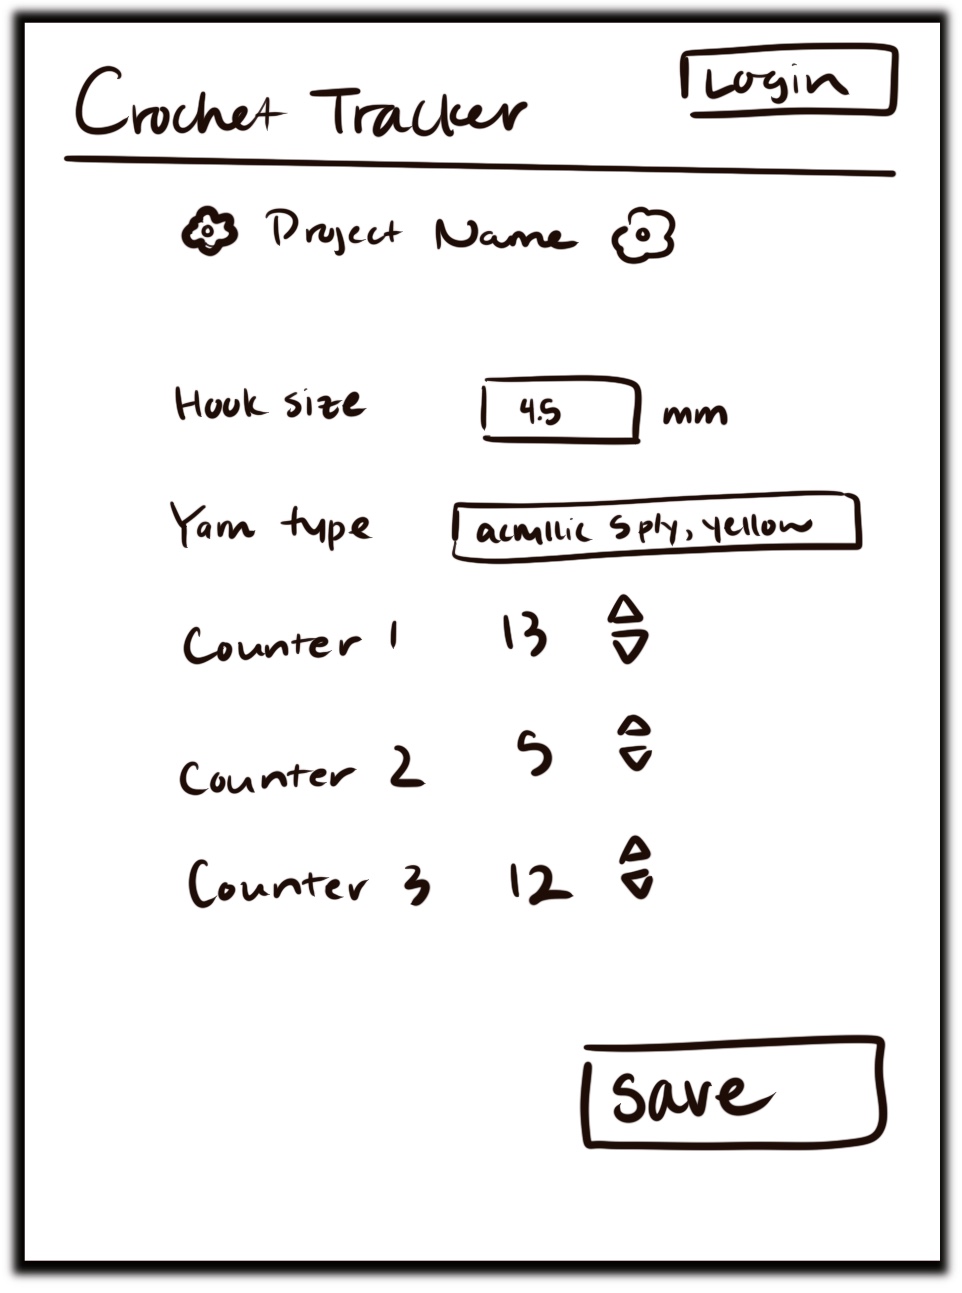 Crochet Tracker
Login
Project Name
Hook size 4.5 mm
Yarn type acryllic 5 ply, yellow
Counter 1 13
Counter 2 5
Counter 3 12
save